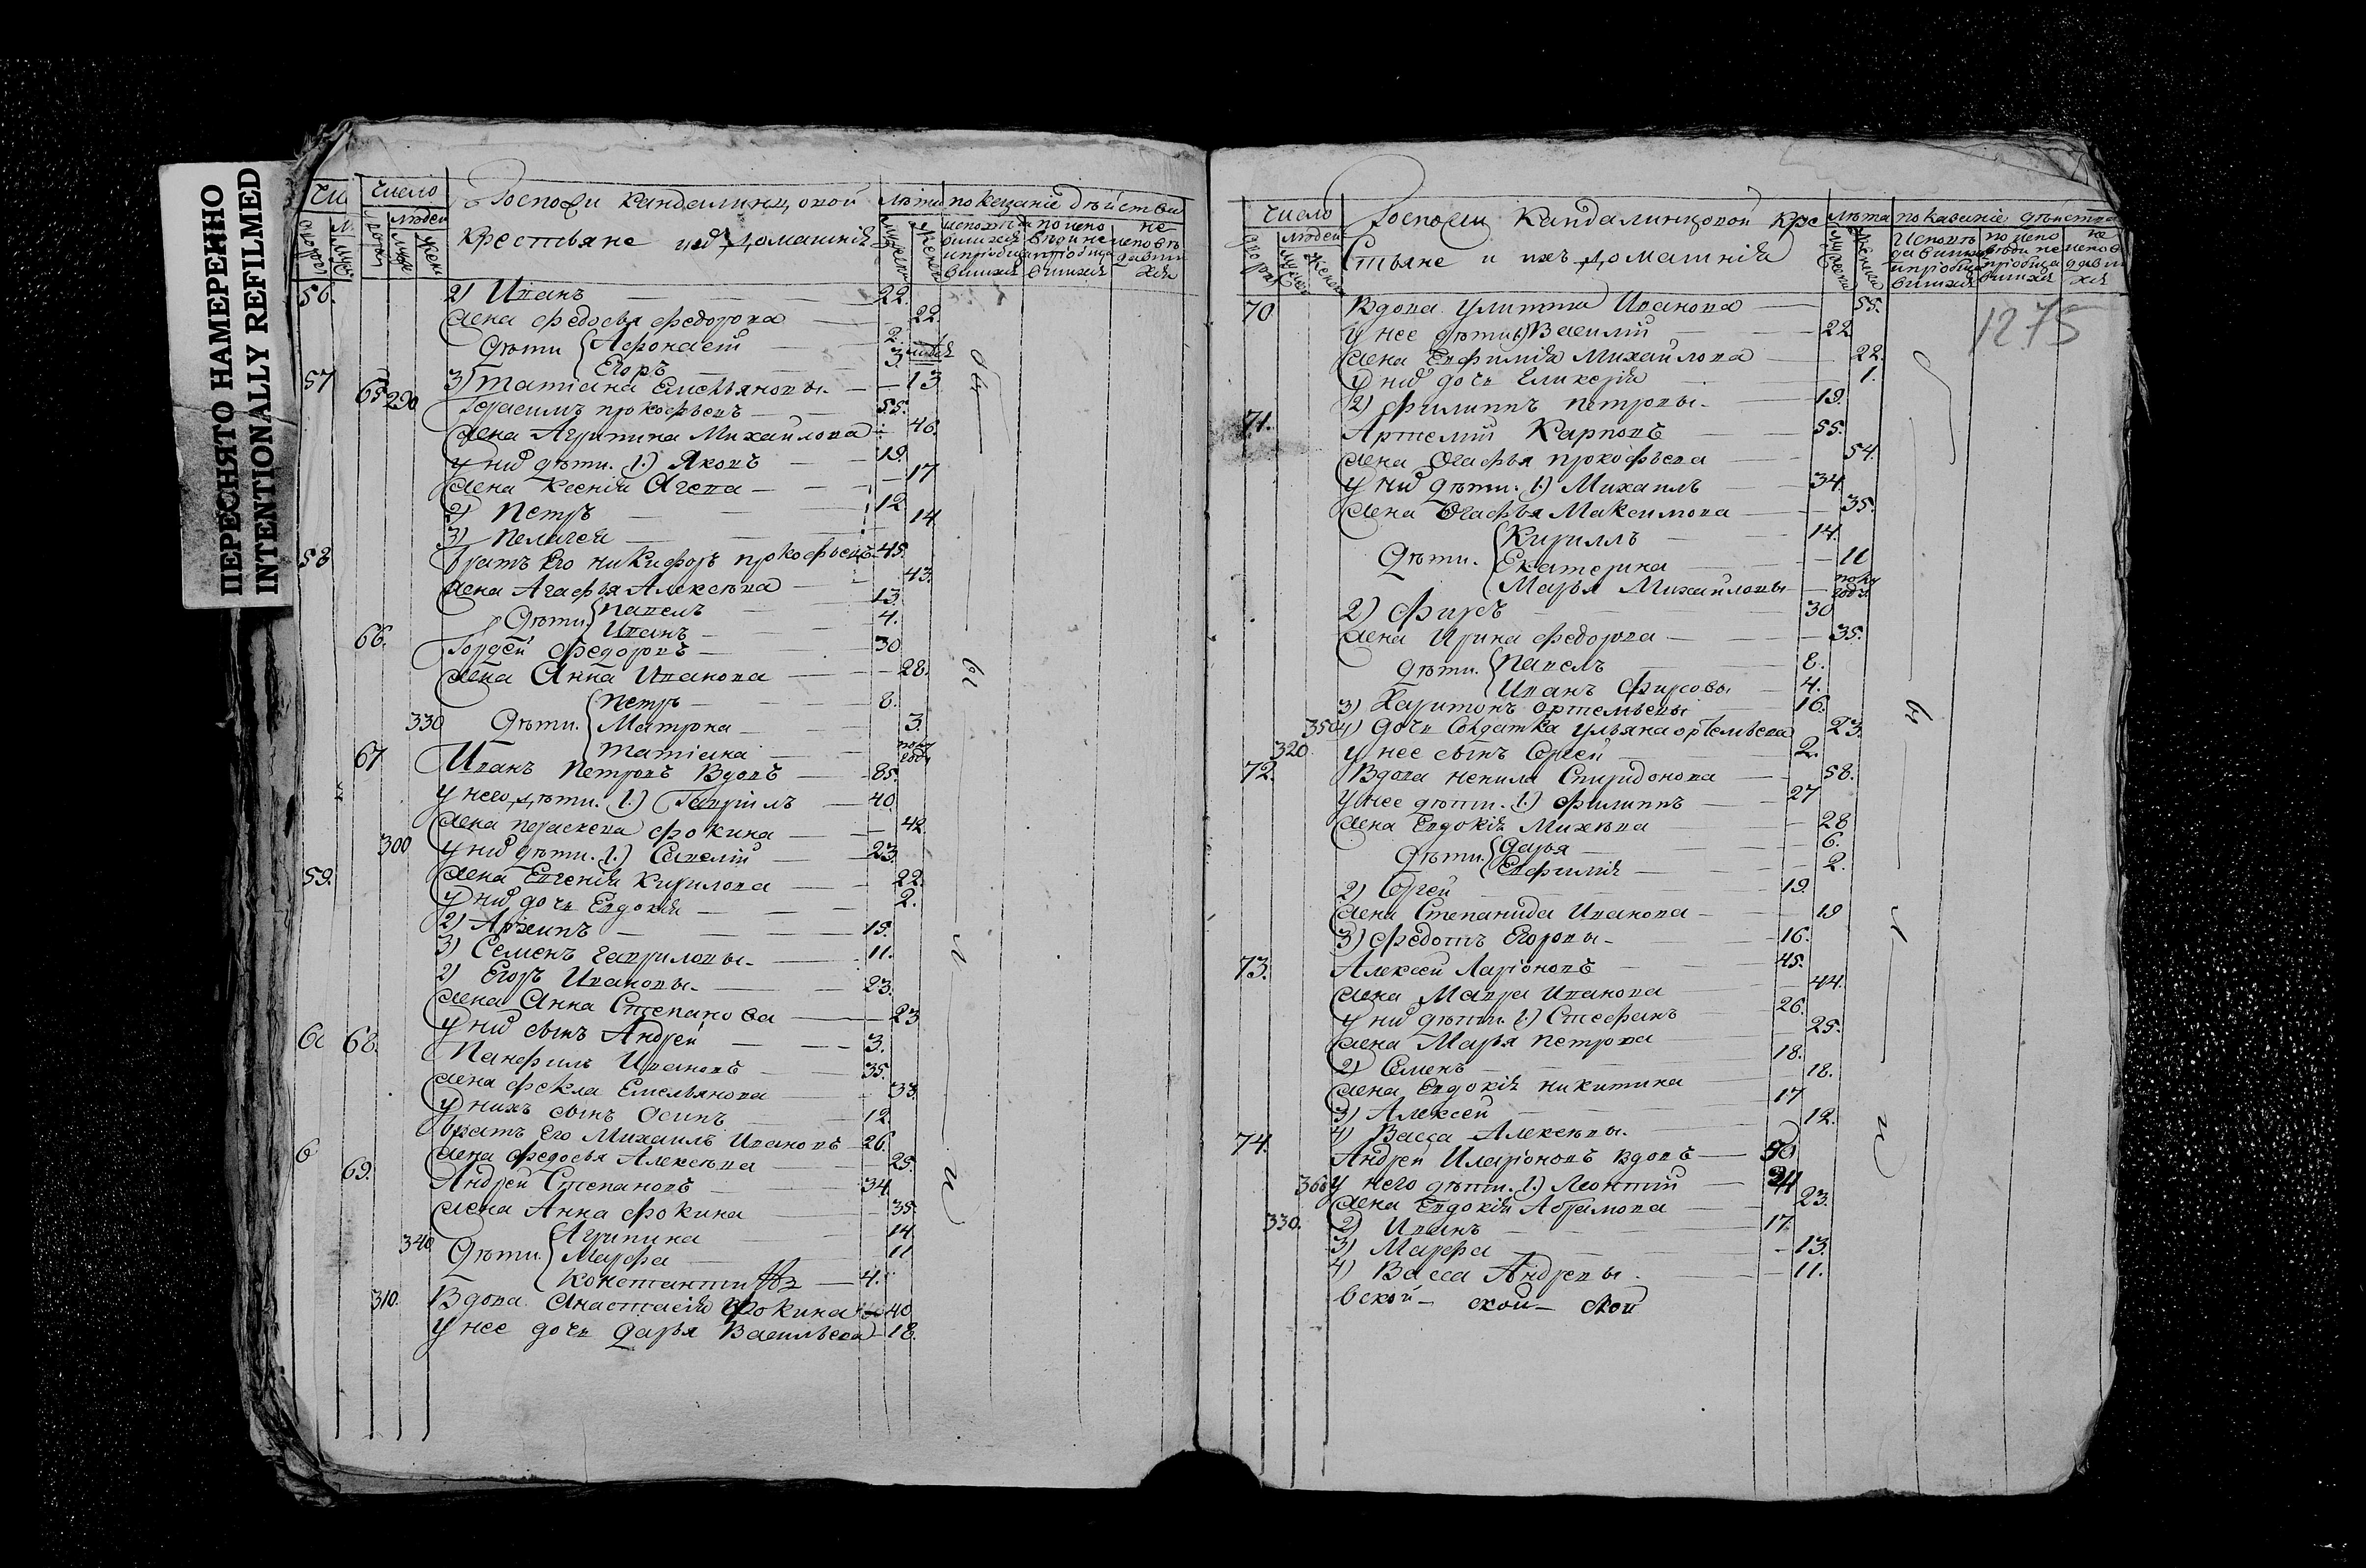 ПЕРЕСНЯТО НАМЕРЕННО
INTENTIONALLY REFILMED
Число
людей
Роспоси Кандалинцовой
Крестьяне
домашнія
лѣта
показаніе дѣйства
56.
2) Иванъ 22.
жена Федосья Федорова 22.
Дѣти Афонасей 2.
Егоръ 3.
57
3) Татіана Емельяновы 13
65 290
Герасимъ Прокофьевъ 55.
жена Агрипина Михайлова 46.
у них дѣти. 1.) Яковъ 19.
жена Ксенія 17
2) Петръ 12
3) Пелагея 14
58
братъ его Никифоръ Прокофьевъ 45.
жена Агафья Алексѣева 43.
Дѣти Павелъ 13.
Иванъ 4.
66.
Гордей Федоровъ 30
жена Анна Иванова 28.
Петръ 8.
330 Дѣти. Матрона 3.
Татіана полу года
67
Иванъ Петровъ Вдовъ 85.
у него дѣти. 1.) Гаврилъ 40.
жена Параскева Фокина 42
300
у них дѣти. 1.) Савелій 23.
59.
жена Евгенія Кирилова 22.
у них дочь Евдокія 2.
2) Архипъ 19.
3) Семенъ Гавриловы 11.
2) Егоръ Ивановы 23.
жена Анна Степанова 23
у них сынъ Андрей 3.
68.
Панфилъ Ивановъ 35.
жена Фекла Емельянова 33.
у нихъ сынъ Осипъ 12.
братъ его Михаилъ Ивановъ 26.
жена Федосья Алексѣева 25.
69.
Андрей Степановъ 34.
жена Анна Фокина 35.
Агрипина 14
340 Дѣти. Марфа 11
Константинъ 4.
310.
Вдова Анастасія Фокина 40.
у нее дочь Дарья Васильева 18.
Число
людей
Роспоси Кандалинцовой Кре
стьяне и ихъ домашнія
лѣта
показаніе дѣйства
1275
70
Вдова Улитта Иванова 55.
у нее дѣти 1) Василій 22
жена Евфимія Михайлова 22.
у них дочь Гликерія 1.
2) Филиппъ Петровы 19.
71.
Артемій Карповъ 55.
жена Огафья Прокофьева 54.
у них дѣти. 1.) Михаилъ 34.
жена Огафья Максимова 35.
Кириллъ 14.
Дѣти. Екатерина 11
Марья Михайловы полу года
2) Фирсъ 30
жена Ирина Федорова 35.
Дѣти. Павелъ 8.
Иванъ Фирсовы 4.
3) Харитонъ Ортемьевы 16.
350 4) дочь Солдатка Ульяна Ортемьева 23.
320.
у нее сынъ Сергей 2.
72.
Вдова Ненила Спиридонова 58.
у нее дѣти. 1.) Филиппъ 27
жена Евдокія Михѣева 28
Дѣти. Дарья 6.
Евфимія 2.
2) Сергей 19.
жена Степанида Иванова 19
3) Федотъ Егоровы 16.
73.
Алексей Ларіоновъ 45.
жена Мавра Иванова 44.
у них дѣти. 1.) Стефанъ 26.
жена Марья Петрова 25.
2) Семенъ 18.
жена Евдокія Никитина 18.
3) Алексей 17
4) Васса Алексѣевы. 12.
74.
Андрей Иларіоновъ вдовъ 50
у него дѣти. 1.) Леонтій 24
жена Евдокія Абрамова 23.
330.
2) Иванъ 17.
3) Марфа 13.
4) Васса Андреевы 11.
вской ской ской